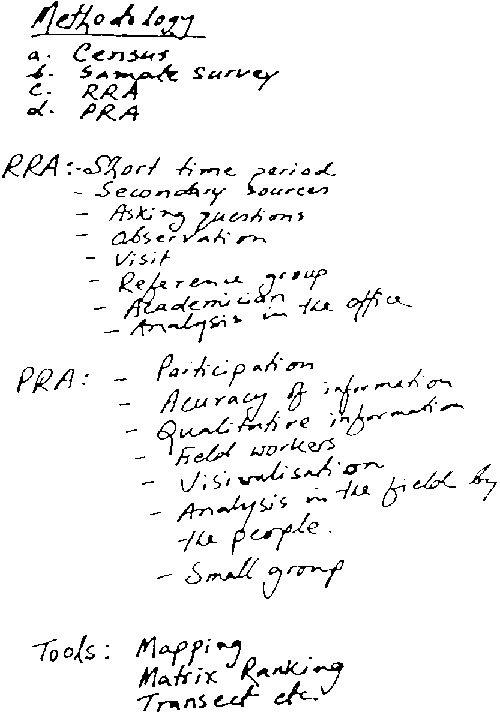 Methodology
a. Census
b. Sample survey
c. RRA
d. PRA
RRA:- Short time period
- Secondary sources
- Asking questions
- Observation
- Visit
- Reference group
- Academician
- Analysis in the office
PRA: - Participation
- Acuracy of information
- Qualitative information
- Field workers
- Visiualisation
- Analysis in the field by
the people.
- Small group
Tools: Mapping
Matrix Ranking
Transect etc.